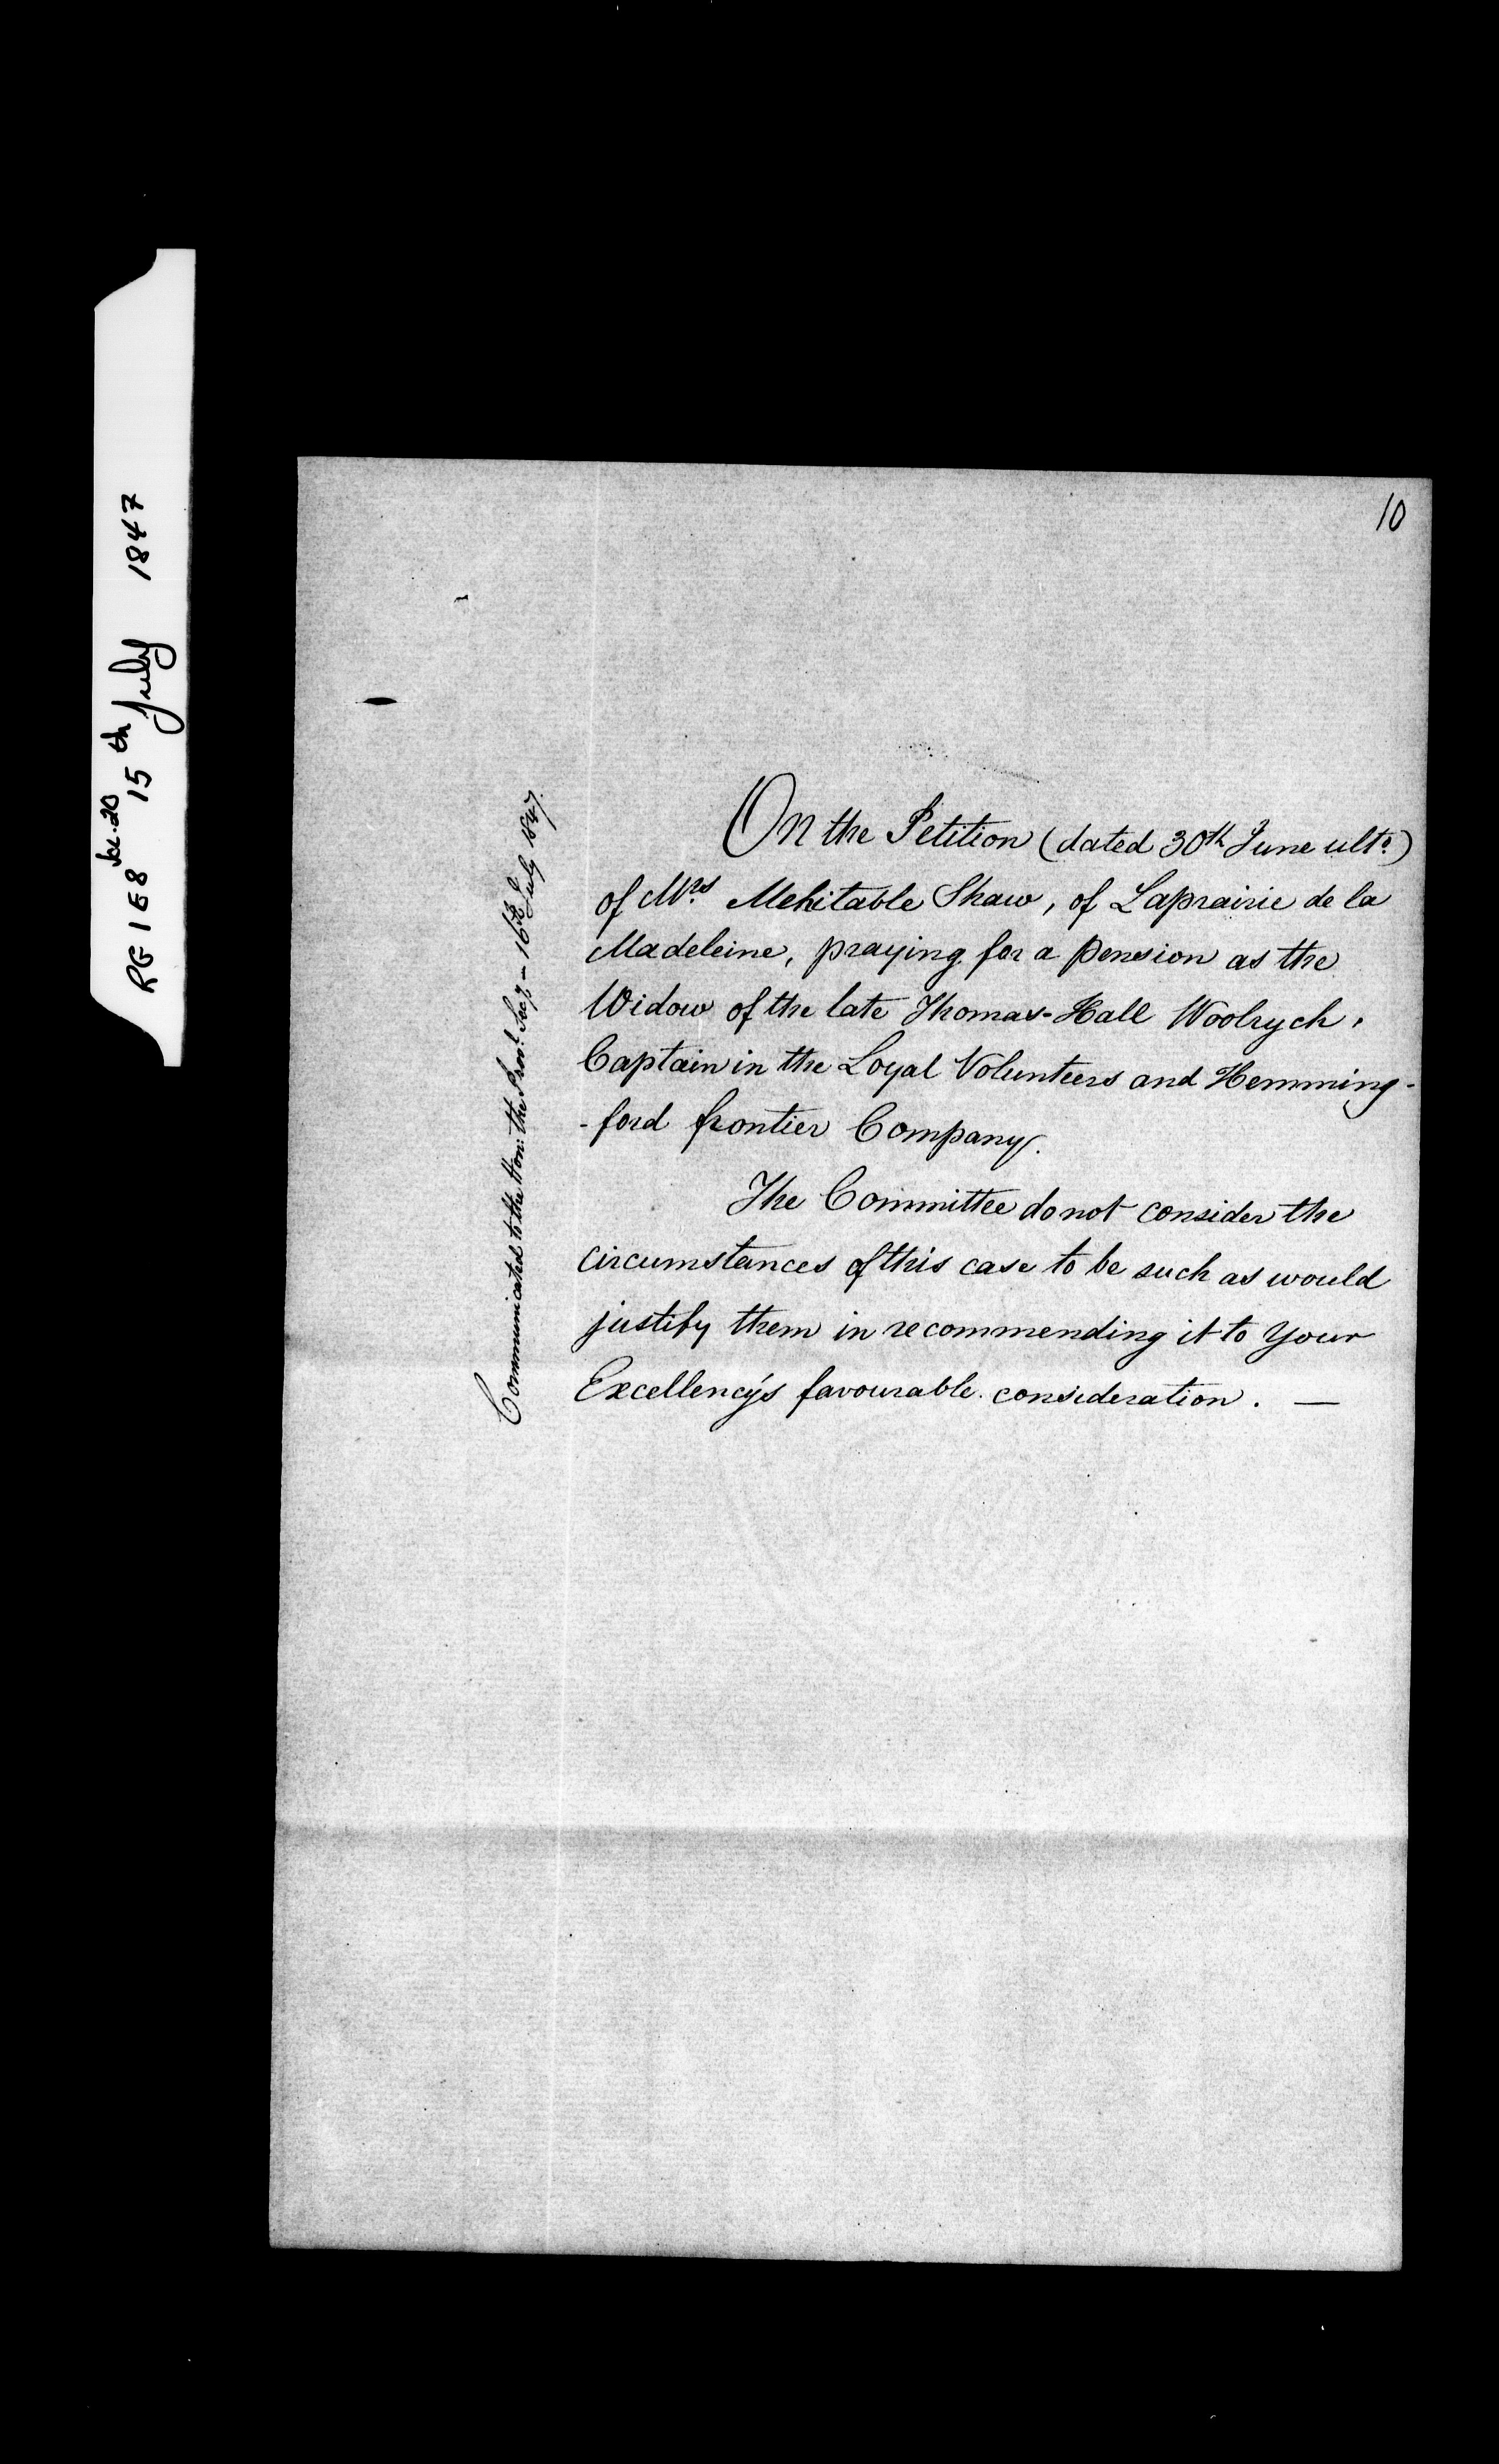 RG 1 E8 Vol. 20 15th July 1847
10
Communicated to the Hon: the Provl. Secy. - 16th July 1847.
On the Petition (dated 30th June ulto.)
of Mrs. Mehitable Shaw, of Laprairie de la
Madeleine, praying for a pension as the
Widow of the late Thomas-Hall Woolrych,
Captain in the Loyal Volunteers and Hemming-
-ford frontier Company.
The Committee do not consider the
circumstances of this case to be such as would
justify them in recommending it to Your
Excellency's favourable consideration. —